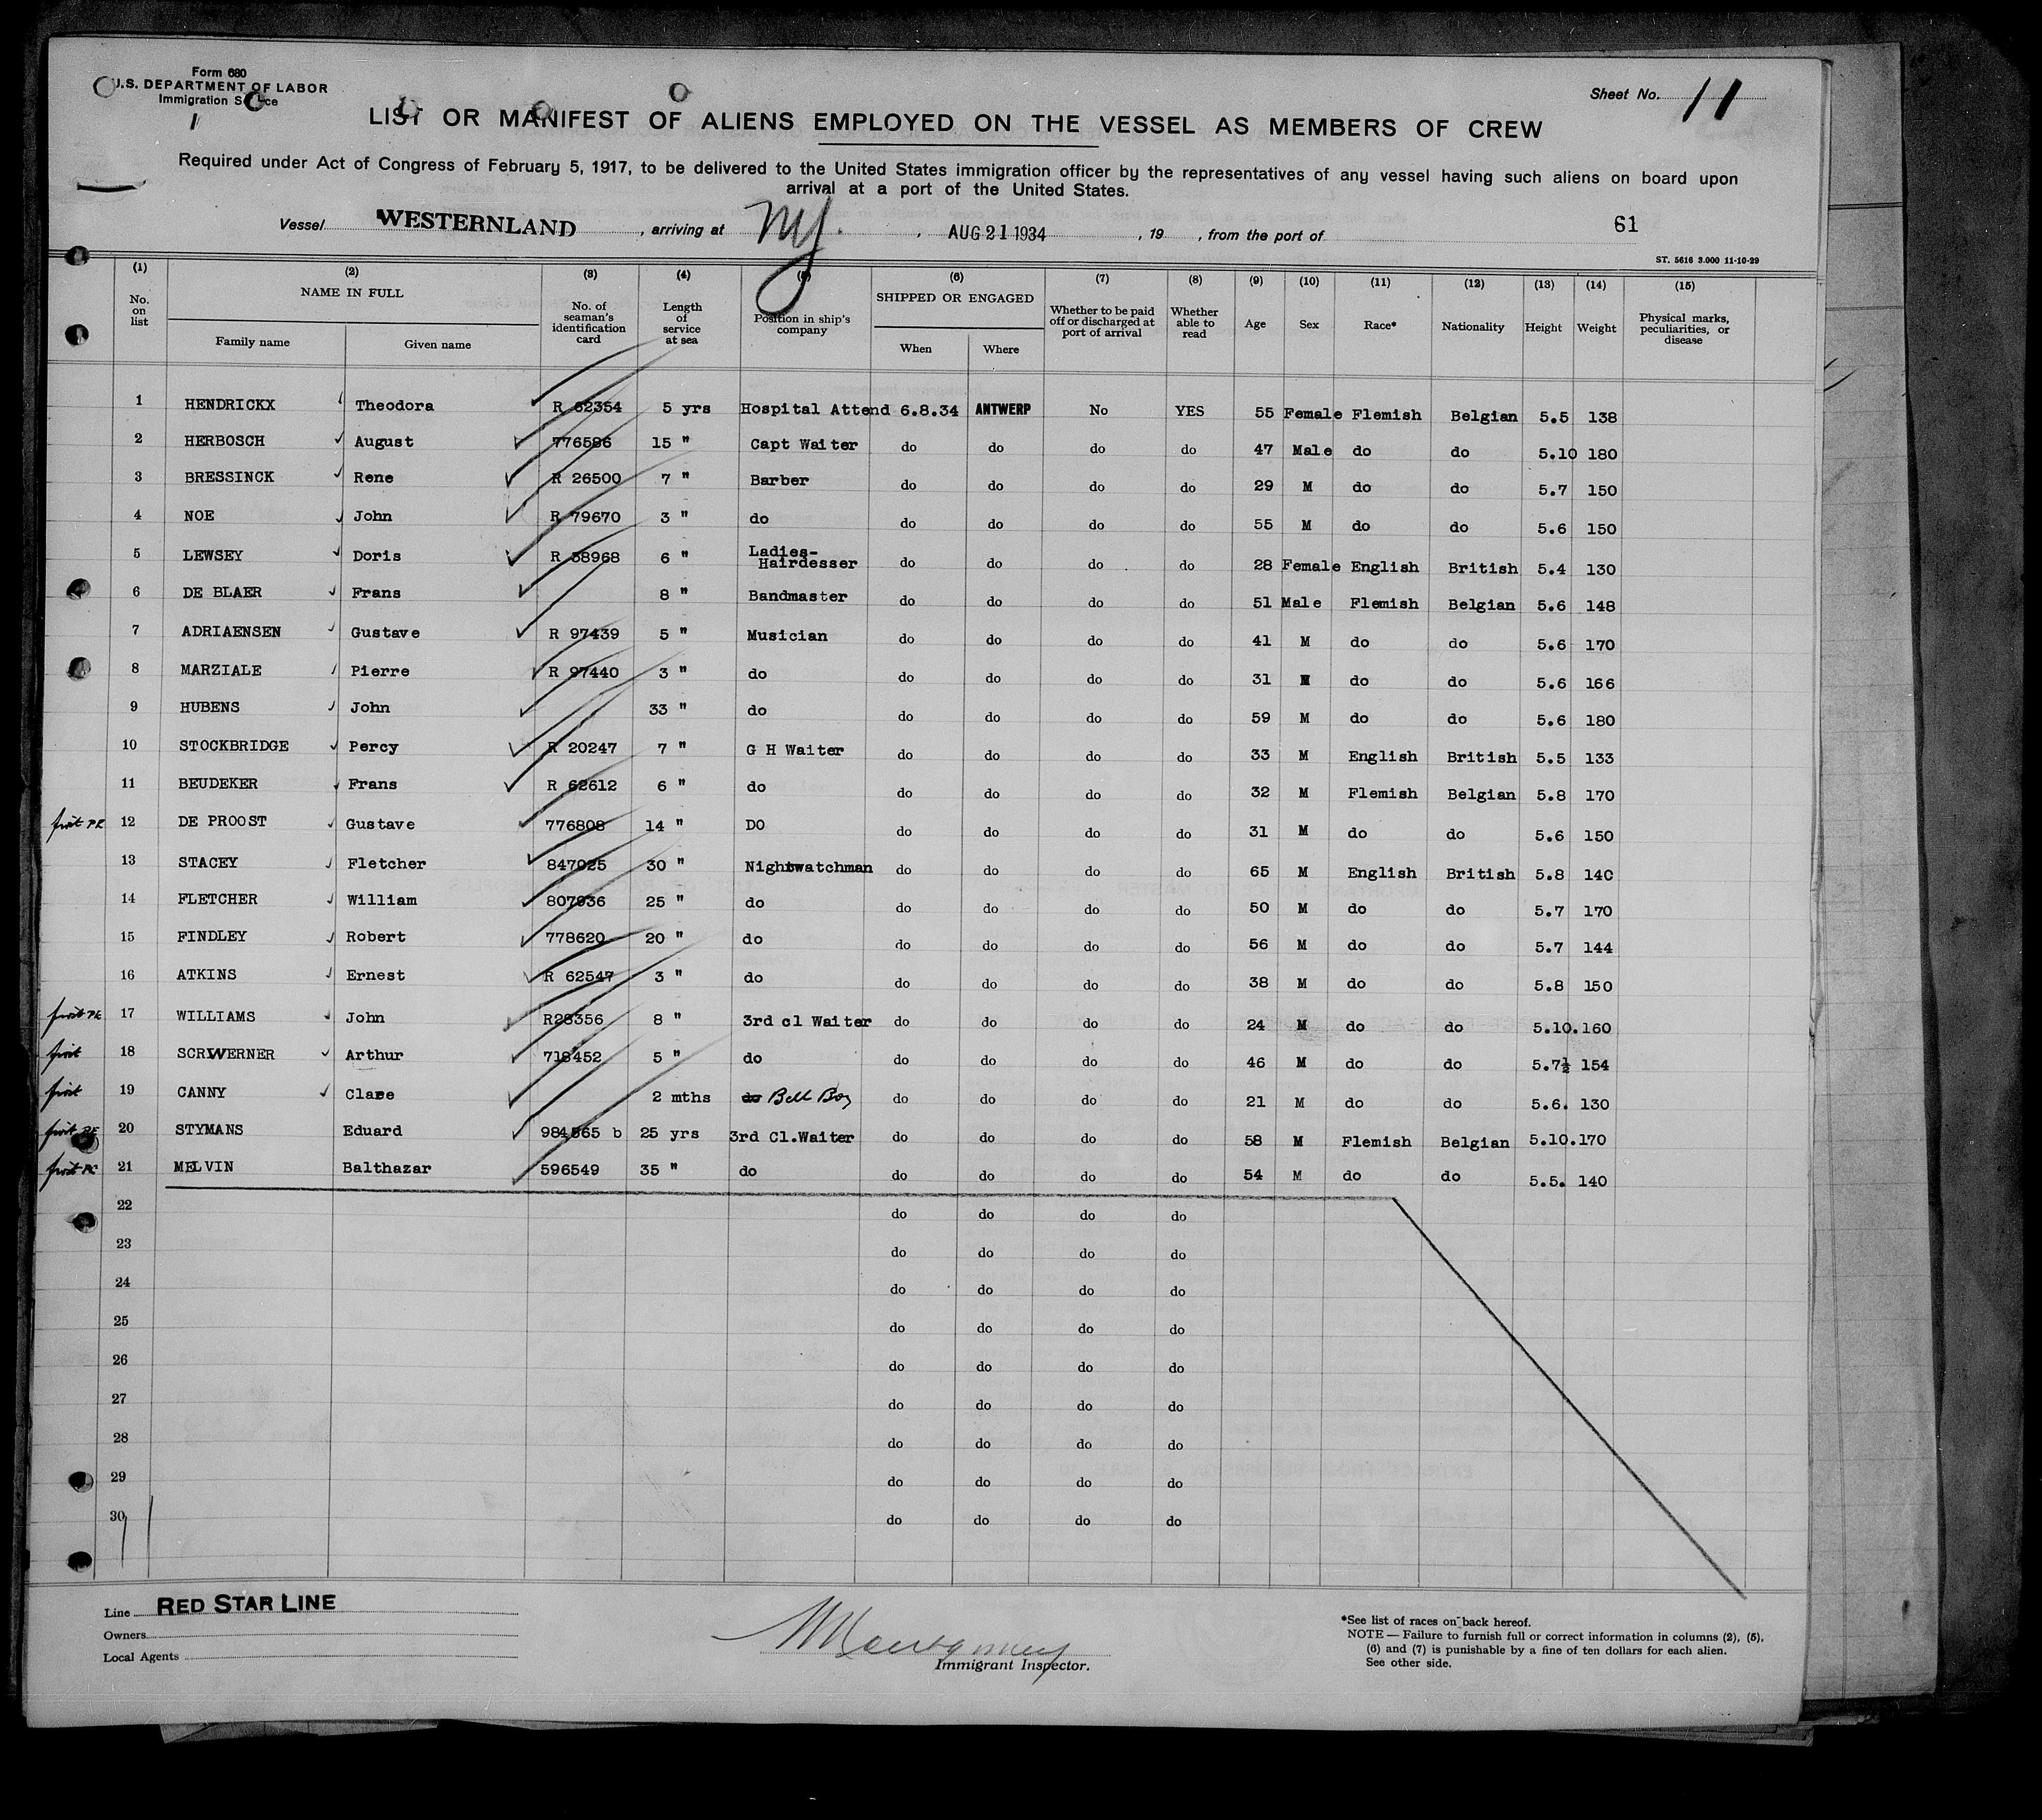 Form 680
U.S. DEPARTMENT OF LABOR
Immigration Service
1
Sheet No. 11
LIST OR MANIFEST OF ALIENS EMPLOYED ON THE VESSEL AS MEMBERS OF CREW
Required under Act of Congress of February 5, 1917, to be delivered to the United States immigration officer by the representatives of any vessel having such aliens on board upon
arrival at a port of the United States.
Vessel WESTERNLAND, arriving at NY., AUG 21 1934, 19 , from the port of 61
ST. 5616 3.000 11-10-29
(1) (2) (3) (4) (5) (6) (7) (8) (9) (10) (11) (12) (13) (14) (15)
No. on list NAME IN FULL Family name Given name No. of seaman's identification card Length of service at sea Position in ship's company SHIPPED OR ENGAGED When Where Whether to be paid off or discharged at port of arrival Whether able to read Age Sex Race* Nationality Height Weight Physical marks, peculiarities, or disease
1 HENDRICKX Theodora R 62354 5 yrs Hospital Attend 6.8.34 ANTWERP No YES 55 Female Flemish Belgian 5.5 138
2 HERBOSCH August 776586 15 " Capt Waiter do do do do 47 Male do do 5.10 180
3 BRESSINCK Rene R 26500 7 " Barber do do do do 29 M do do 5.7 150
4 NOE John R 79670 3 " do do do do do 55 M do do 5.6 150
5 LEWSEY Doris R 38968 6 " Ladies- Hairdesser do do do do 28 Female English British 5.4 130
6 DE BLAER Frans 8 " Bandmaster do do do do 51 Male Flemish Belgian 5.6 148
7 ADRIAENSEN Gustave R 97439 5 " Musician do do do do 41 M do do 5.6 170
8 MARZIALE Pierre R 97440 3 " do do do do do 31 M do do 5.6 166
9 HUBENS John 33 " do do do do do 59 M do do 5.6 180
10 STOCKBRIDGE Percy R 20247 7 " G H Waiter do do do do 33 M English British 5.5 133
11 BEUDEKER Frans R 62612 6 " do do do do do 32 M Flemish Belgian 5.8 170
first PE 12 DE PROOST Gustave 776808 14 " DO do do do do 31 M do do 5.6 150
13 STACEY Fletcher 847025 30 " Nightwatchman do do do do 65 M English British 5.8 140
14 FLETCHER William 807936 25 " do do do do do 50 M do do 5.7 170
15 FINDLEY Robert 778620 20 " do do do do do 56 M do do 5.7 144
16 ATKINS Ernest R 62547 3 " do do do do do 38 M do do 5.8 150
first PE 17 WILLIAMS John R28356 8 " 3rd cl Waiter do do do do 24 M do do 5.10. 160
first 18 SCRWERNER Arthur 718452 5 " do do do do do 46 M do do 5.7½ 154
first 19 CANNY Clare 2 mths do Bell Boy do do do do 21 M do do 5.6. 130
first PE 20 STYMANS Eduard 984565 b 25 yrs 3rd Cl.Waiter do do do do 58 M Flemish Belgian 5.10. 170
first PE 21 MELVIN Balthazar 596549 35 " do do do do do 54 M do do 5.5. 140
22 do do do do
23 do do do do
24 do do do do
25 do do do do
26 do do do do
27 do do do do
28 do do do do
29 do do do do
30 do do do do
Line RED STAR LINE
Owners
Local Agents
Montgomery
Immigrant Inspector.
*See list of races on back hereof.
NOTE — Failure to furnish full or correct information in columns (2), (5),
(6) and (7) is punishable by a fine of ten dollars for each alien.
See other side.